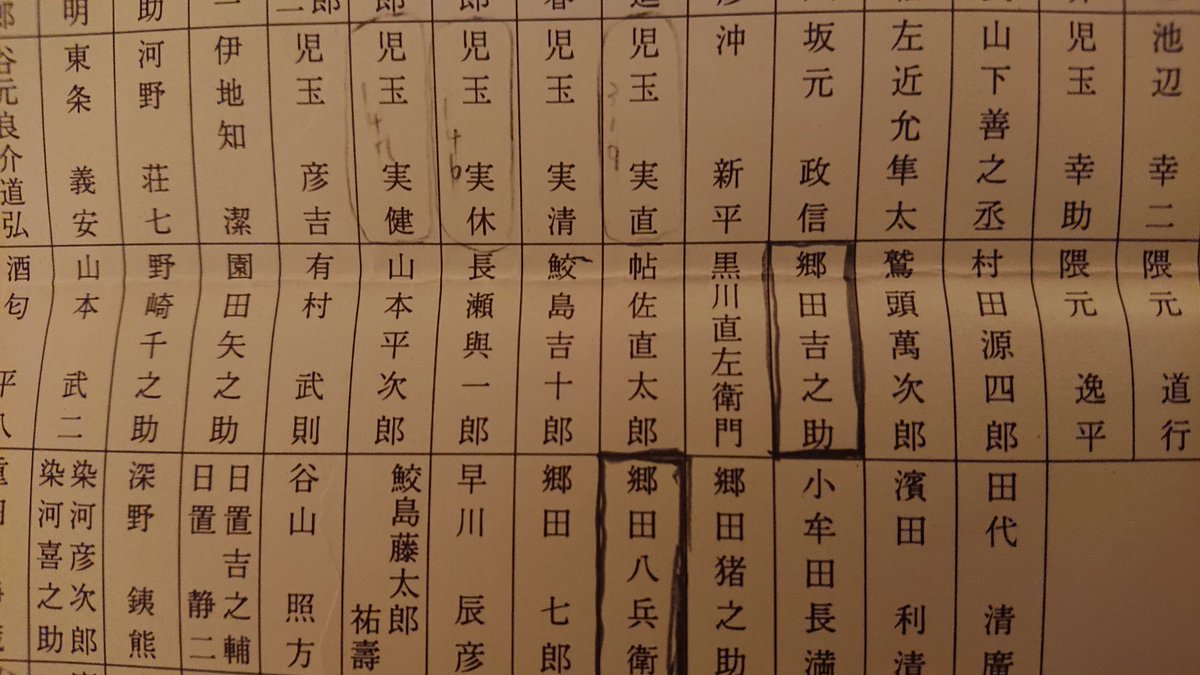 池辺幸二
児玉幸助
山下善之丞
左近允隼太
坂元政信
沖新平
児玉実直
児玉実清
児玉実休
児玉実健
児玉彦吉
伊地知潔
河野荘七
東条義安
谷元良介道弘
隈元道行
隈元逸平
村田源四郎
鷲頭萬次郎
郷田吉之助
黒川直左衛門
帖佐直太郎
鮫島吉十郎
長瀬與一郎
山本平次郎
有村武則
園田矢之助
野崎千之助
山本武二
酒匂平八
田代清廣
濱田利清
小牟田長満
郷田猪之助
郷田八兵衛
郷田七郎
早川辰彦
鮫島藤太郎
祐壽
谷山照方
日置吉之輔
日置静二
深野銕熊
染河彦次郎
染河喜之助